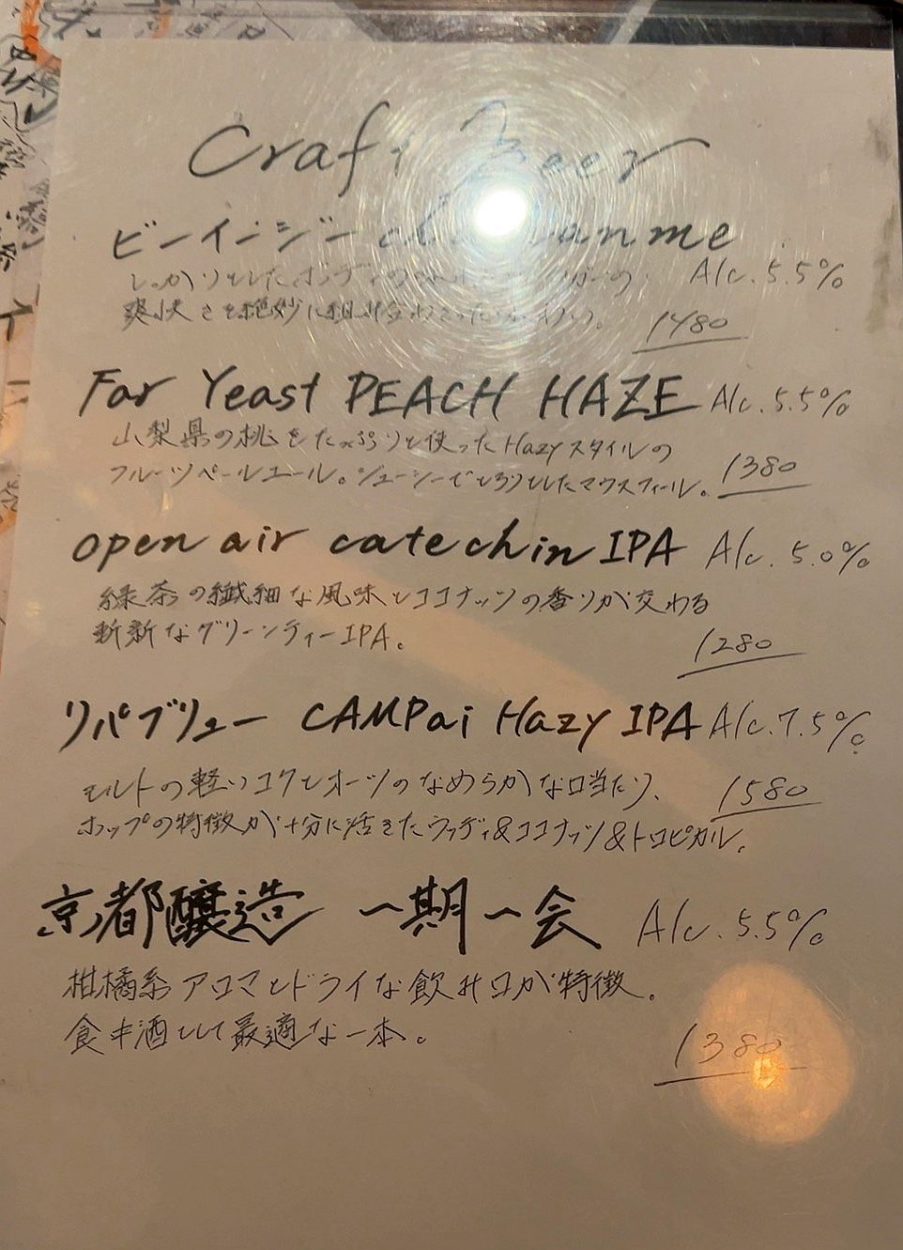 Craft Beer
ビーイージー
Alc. 5.5%
しっかりとしたボディ
爽快さを絶妙に組み合わせた
1480
Far Yeast PEACH HAZE Alc. 5.5%
山梨県の桃をたっぷりと使ったHazyスタイルの
フルーツペールエール。ジューシーでとろりとしたマウスフィール。
1380
open air catechin IPA Alc. 5.0%
緑茶の繊細な風味とココナッツの香りが交わる
斬新なグリーンティーIPA。
1280
リパブリュー CAMPai Hazy IPA Alc. 7.5%
モルトの軽いコクとオーツのなめらかな口当たり、
1580
ホップの特徴が十分に活きたウッディ&ココナッツ&トロピカル。
京都醸造 一期一会 Alc. 5.5%
柑橘系アロマとドライな飲み口が特徴。
食中酒として最適な一本。
1380